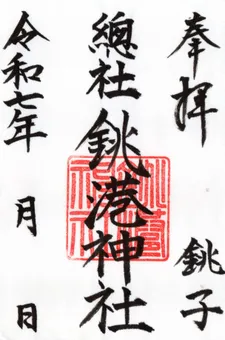 奉拝
銚子
總社 銚港神社
令和七年 月 日